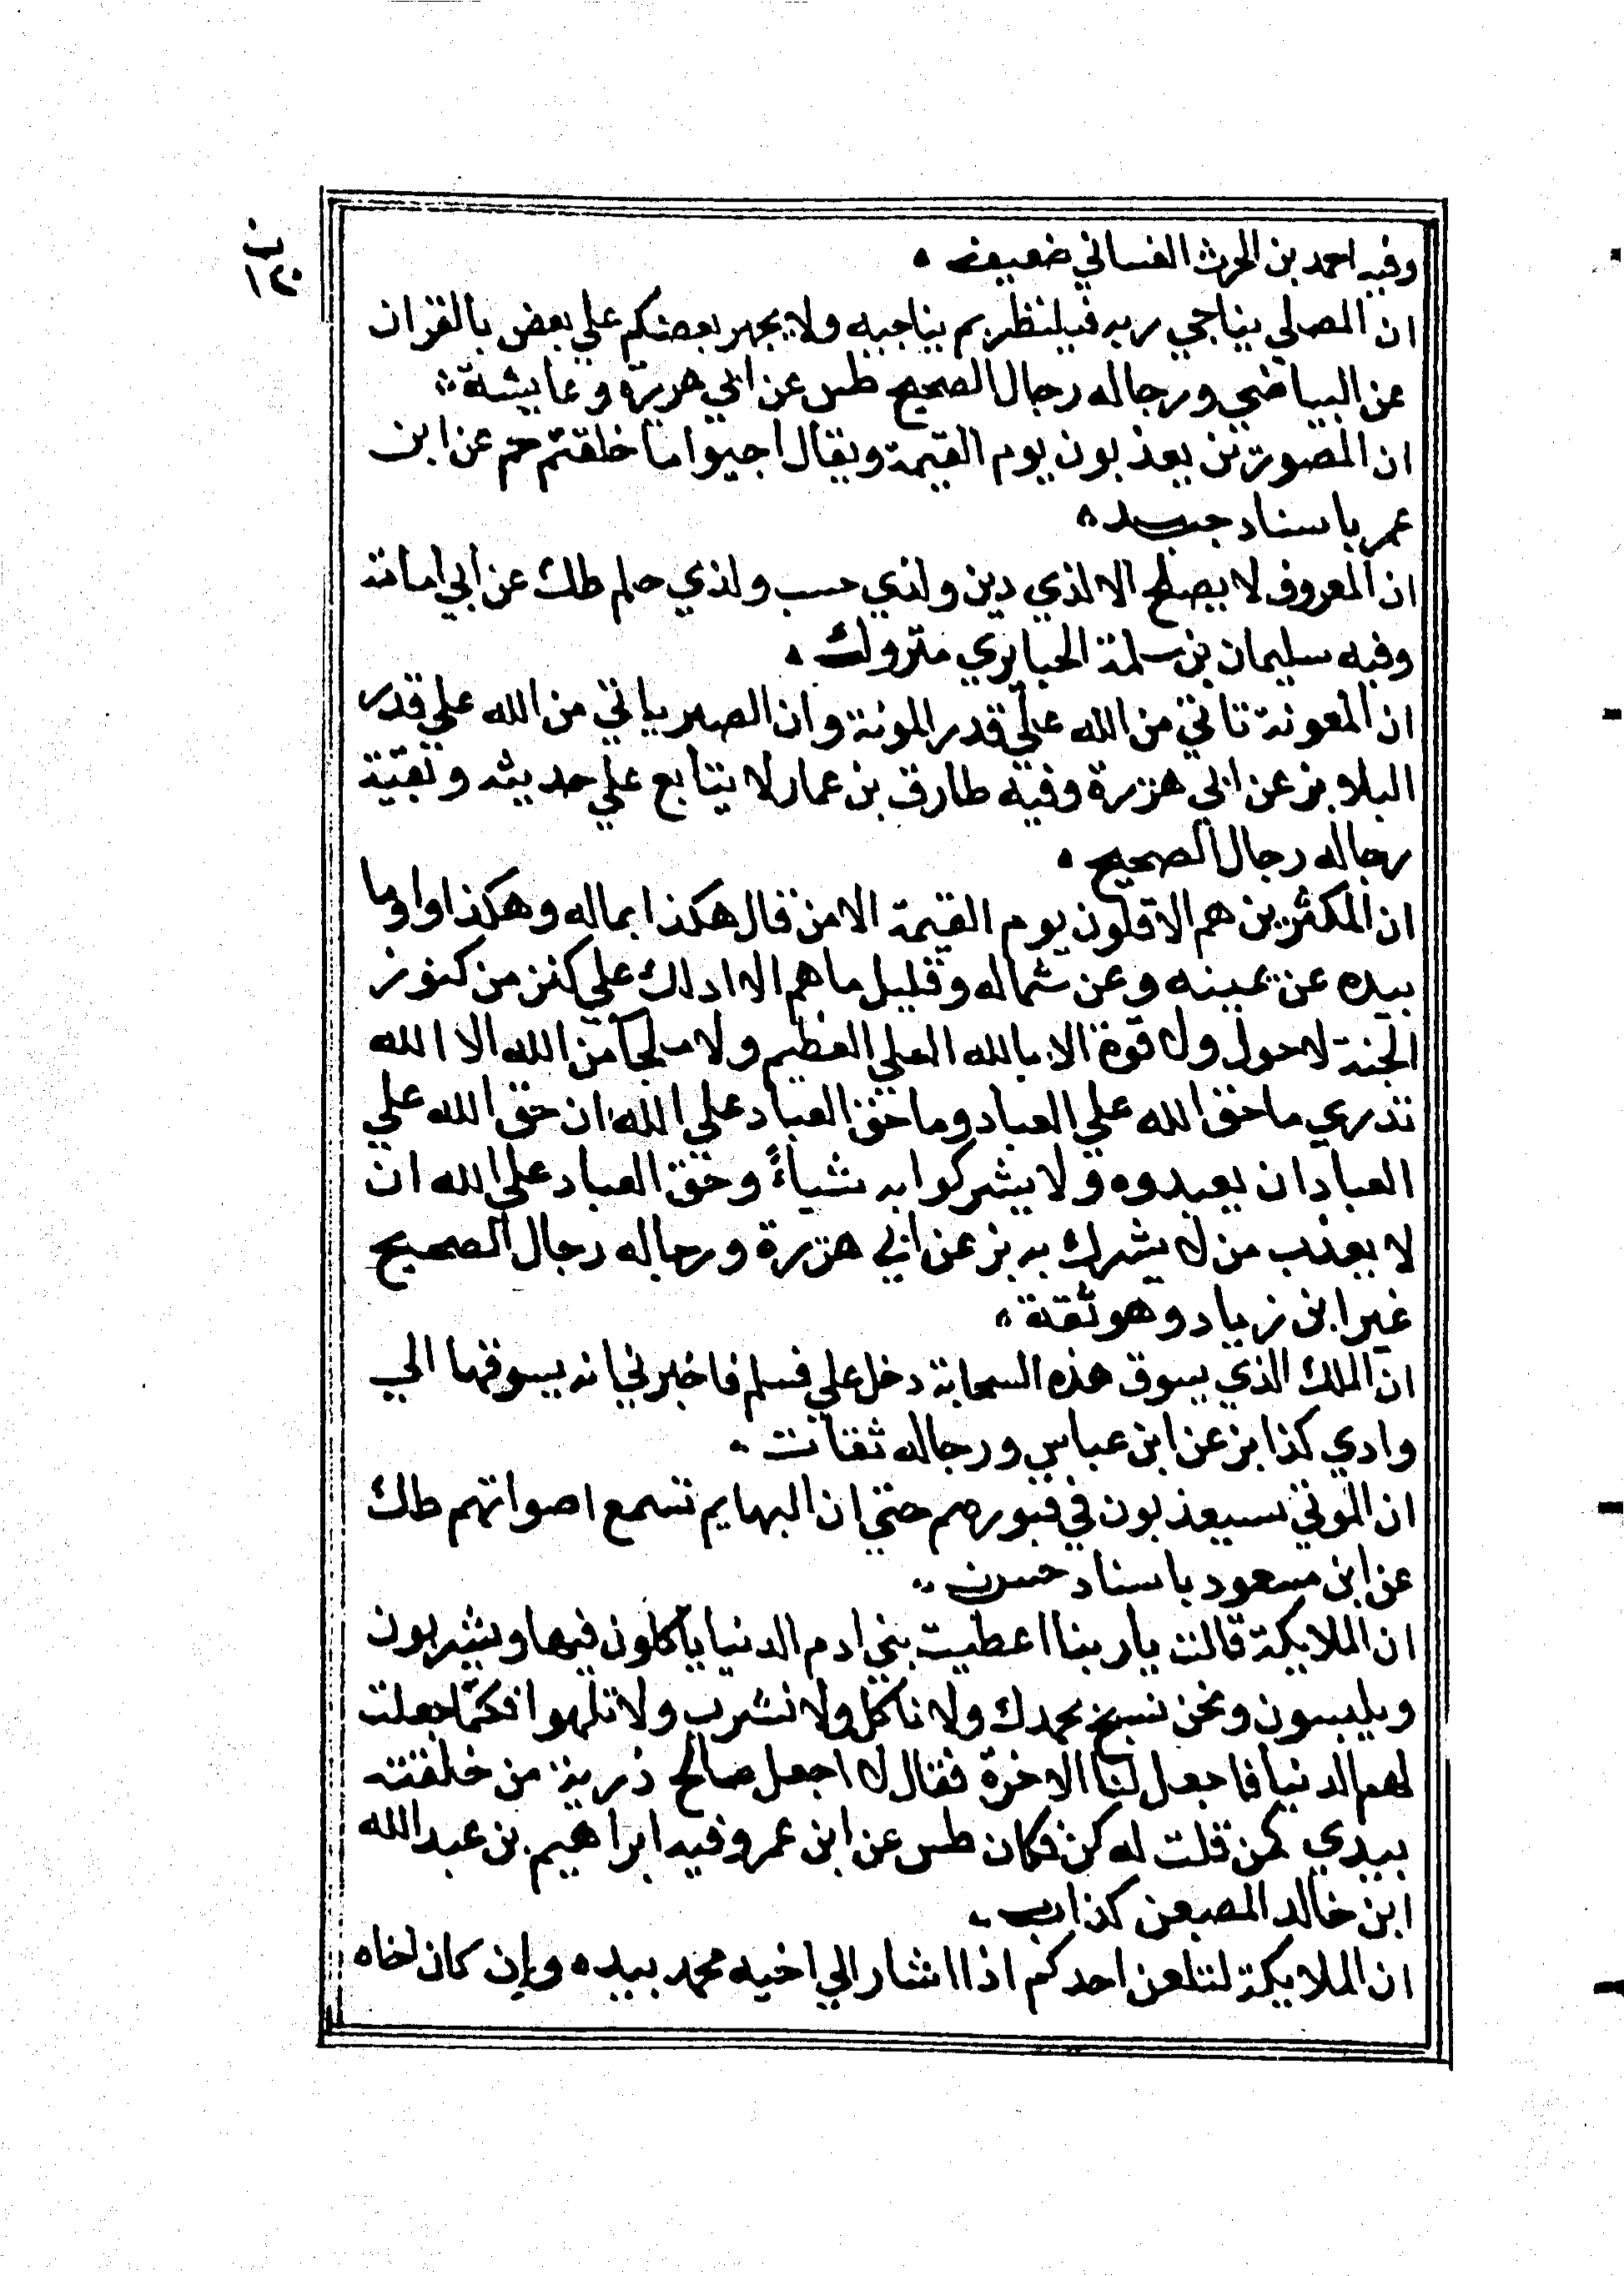 وفيه احمد بن الحرث الغساني ضعيف
ان المصلي يناجي ربه فيلنظر بم يناجيه ولا يجهر بعضكم علي بعض بالقران
عن البياضي ورجاله رجال الصحيح طس عن ابي هريرة وعايشة
ان المصورين يعذبون يوم القيمة ويقال احيوا ما خلقتم حم عن ابن
عمر باسناد جيد
ان المعروف لا يصلح الا لذي دين ولذي حسب ولذي حلم طك عن ابي امامة
وفيه سليمان بن سلمة الخبايري متروك
ان المعونة تاتي من الله علي قدر المونة وان الصبر ياتي من الله علي قدر
البلا بز عن ابي هريرة وفيه طارق بن عمار لا يتابع علي حديثه وبقية
رجاله رجال الصحيح
ان المكثرين هم الاقلون يوم القيمة الا من قال هكذا بماله وهكذا واوما
بيده عن يمينه وعن شماله وقليل ما هم الا ادلك علي كنز من كنوز
الجنة لا حول ولا قوة الا بالله العلي العظيم ولا ملجأ من الله الا الله
تدري ما حق الله علي العباد وما حق العباد علي الله ان حق الله علي
العباد ان يعبدوه ولا يشركوا به شياءً وحق العباد علي الله ان
لا يعذب من لا يشرك به بز عن ابي هريرة ورجاله رجال الصحيح
غير ابن زياد وهو ثقة
ان الملك الذي يسوق هذه السحابة دخل علي فسلم فاخبرني انه يسوقها الي
وادي كذا بز عن ابن عباس ورجاله ثقات
ان الموتي سيعذبون في قبورهم حتي ان البهايم تسمع اصواتهم طك
عن ابن مسعود باسناد حسن
ان الملايكة قالت يا ربنا اعطيت بني ادم الدنيا يأكلون فيها ويشربون
ويلبسون ونحن نسبح بحمدك ولا ناكل ولا نشرب ولا نلهوا فكما جعلت
لهم الدنيا فاجعل لنا الاخرة فقال لا اجعل صالح ذرية من خلقته
بيدي كمن قلت له كن فكان طس عن ابن عمر وفيه ابراهيم بن عبد الله
ابن خالد المصيص كذاب
ان الملايكة لتلعن احدكم اذا اشار الي اخيه بحديده وإن كان اخاه